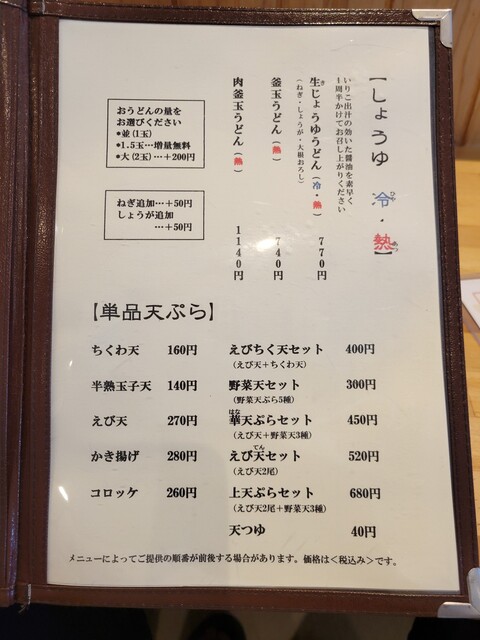 【しょうゆ 冷・熱】
ひや
あつ
いりこ出汁の効いた醤油を素早く
1周半かけてお召し上がりください
生じょうゆうどん(冷・熱) 770円
き
(ねぎ・しょうが・大根おろし)
釜玉うどん(熱) 740円
肉釜玉うどん(熱) 1140円
おうどんの量を
お選びください
*並(1玉)
*1.5玉…増量無料
*大(2玉)…+200円
ねぎ追加…+50円
しょうが追加
…+50円
【単品天ぷら】
ちくわ天 160円
半熟玉子天 140円
えび天 270円
かき揚げ 280円
コロッケ 260円
えびちく天セット 400円
(えび天+ちくわ天)
野菜天セット 300円
(野菜天ぷら5種)
はな
華天ぷらセット 450円
(えび天+野菜天3種)
てん
えび天セット 520円
(えび天2尾)
上天ぷらセット 680円
(えび天2尾+野菜天3種)
天つゆ 40円
メニューによってご提供の順番が前後する場合があります。価格は<税込み>です。